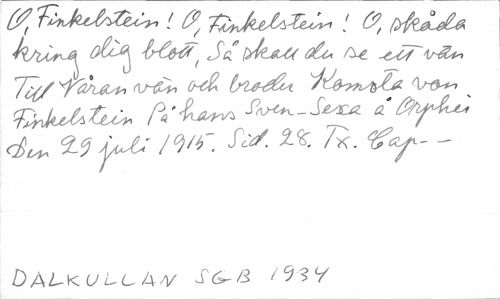 O, Finkelstein! O, Finkelstein! O, skåda
kring dig blott, Så skall du se ett vän
Till Våran vän och broder Komota von
Finkelstein På hans Sven-Sexa å Orphei
Den 29 juli 1915. Sid. 28. Tx. Cap--
DALKULLAN SGB 1934